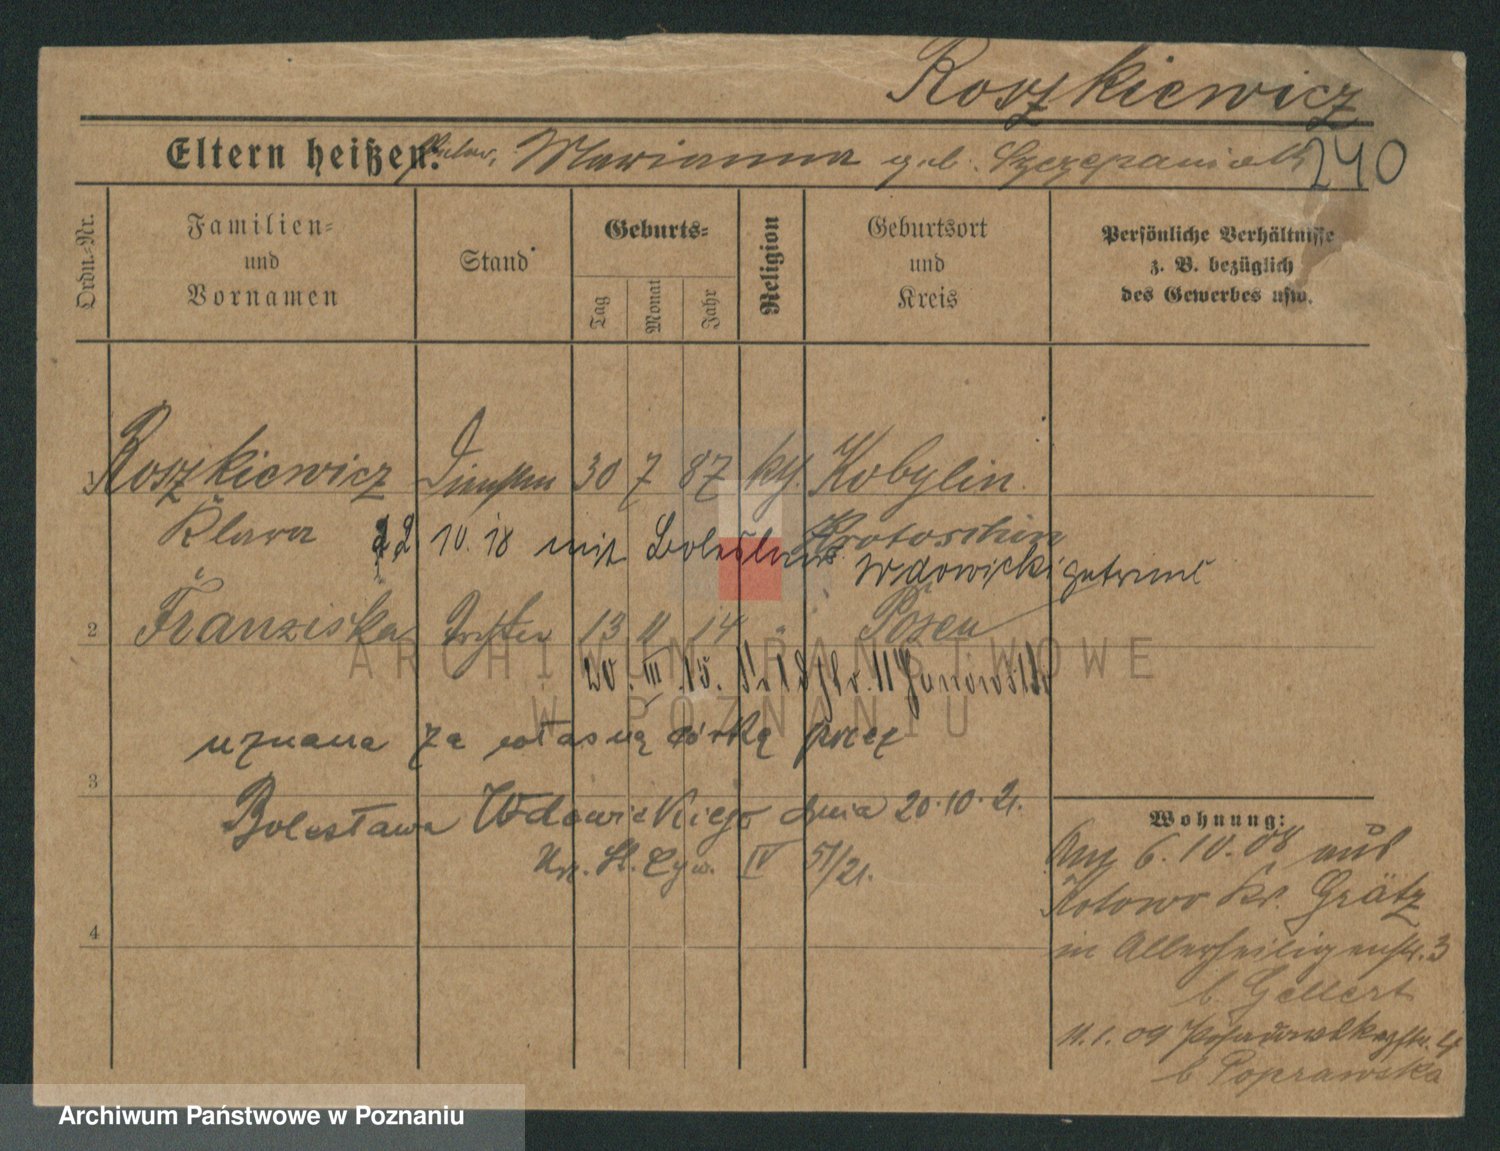 Roszkiewicz
Eltern heißen: Marianna geb. Szczepaniak 240
Ordn.-Nr.
Familien- und Vornamen
Stand
Geburts-
Tag Monat Jahr
Religion
Geburtsort und Kreis
Persönliche Verhältnisse
z. B. bezüglich
des Gewerbes usw.
1 Roszkiewicz 30 7 87 Kobylin
Klara Krotoschin
22 10. 18 mit Boleslaus Wdowicki getraut
2 Franziska Tochter 13 11 14 " Posen
20. III. 15.
uznana za własną córkę przez
3
Bolesława Wdowickiego dnia 20.10.21.
Urz. St. Cyw. IV 51/21.
4
Wohnung:
6.10.08 aus
Kotowo Kr. Grätz
in Allerheiligenstr. 3
b. Gellert
11.1.09 4
b Poprawska
ARCHIWUM PAŃSTWOWE
W POZNANIU
Archiwum Państwowe w Poznaniu